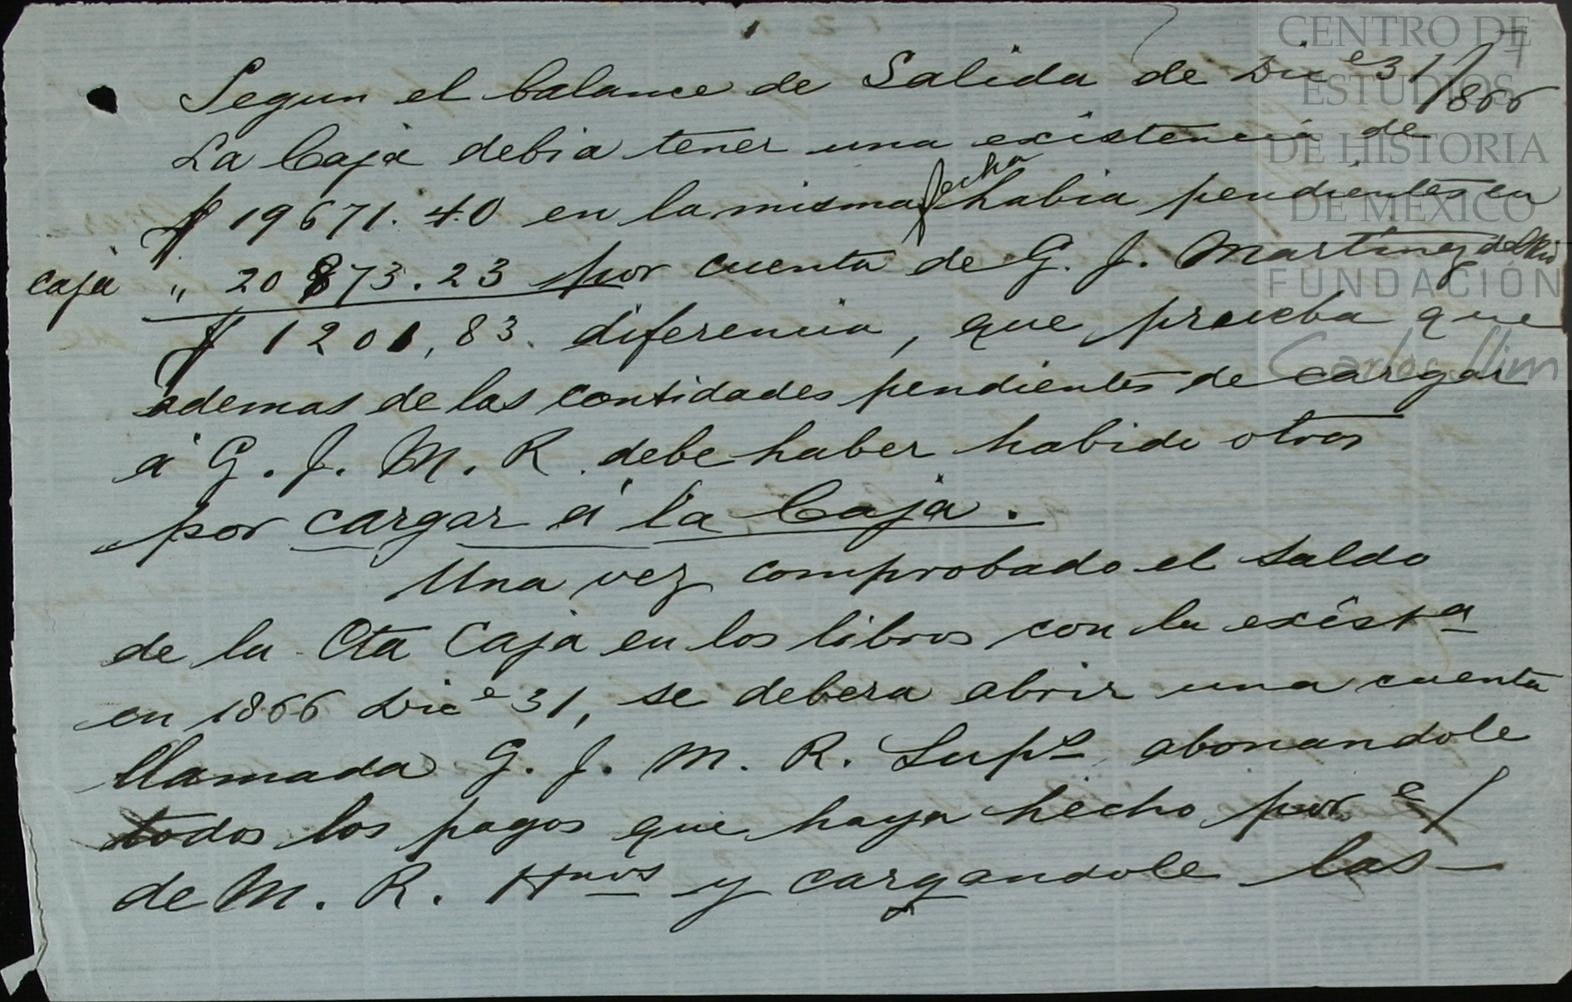 Segun el balance de Salida de Dice 31/1866
La Caja debia tener una existencia de
$ 19671.40 en la misma fecha habia pendientes en
caja " 20873.23 por cuenta de G. J. Martinez del Rio
$ 1201,83 diferencia, que prueba que
ademas de las contidades pendientes de cargar
á G. J. M. R. debe haber habido otros
por cargar á la Caja.
Una vez comprobado el saldo
de la Cta Caja en los libros con la exista
en 1866 Dice 31, se debera abrir una cuenta
llamada G. J. M. R. Supo abonandole
todos los pagos que haya hecho por c/
de M. R. Hnos y cargandole las
CENTRO DE
ESTUDIOS
DE HISTORIA
DE MÉXICO
FUNDACIÓN
Carlos Slim